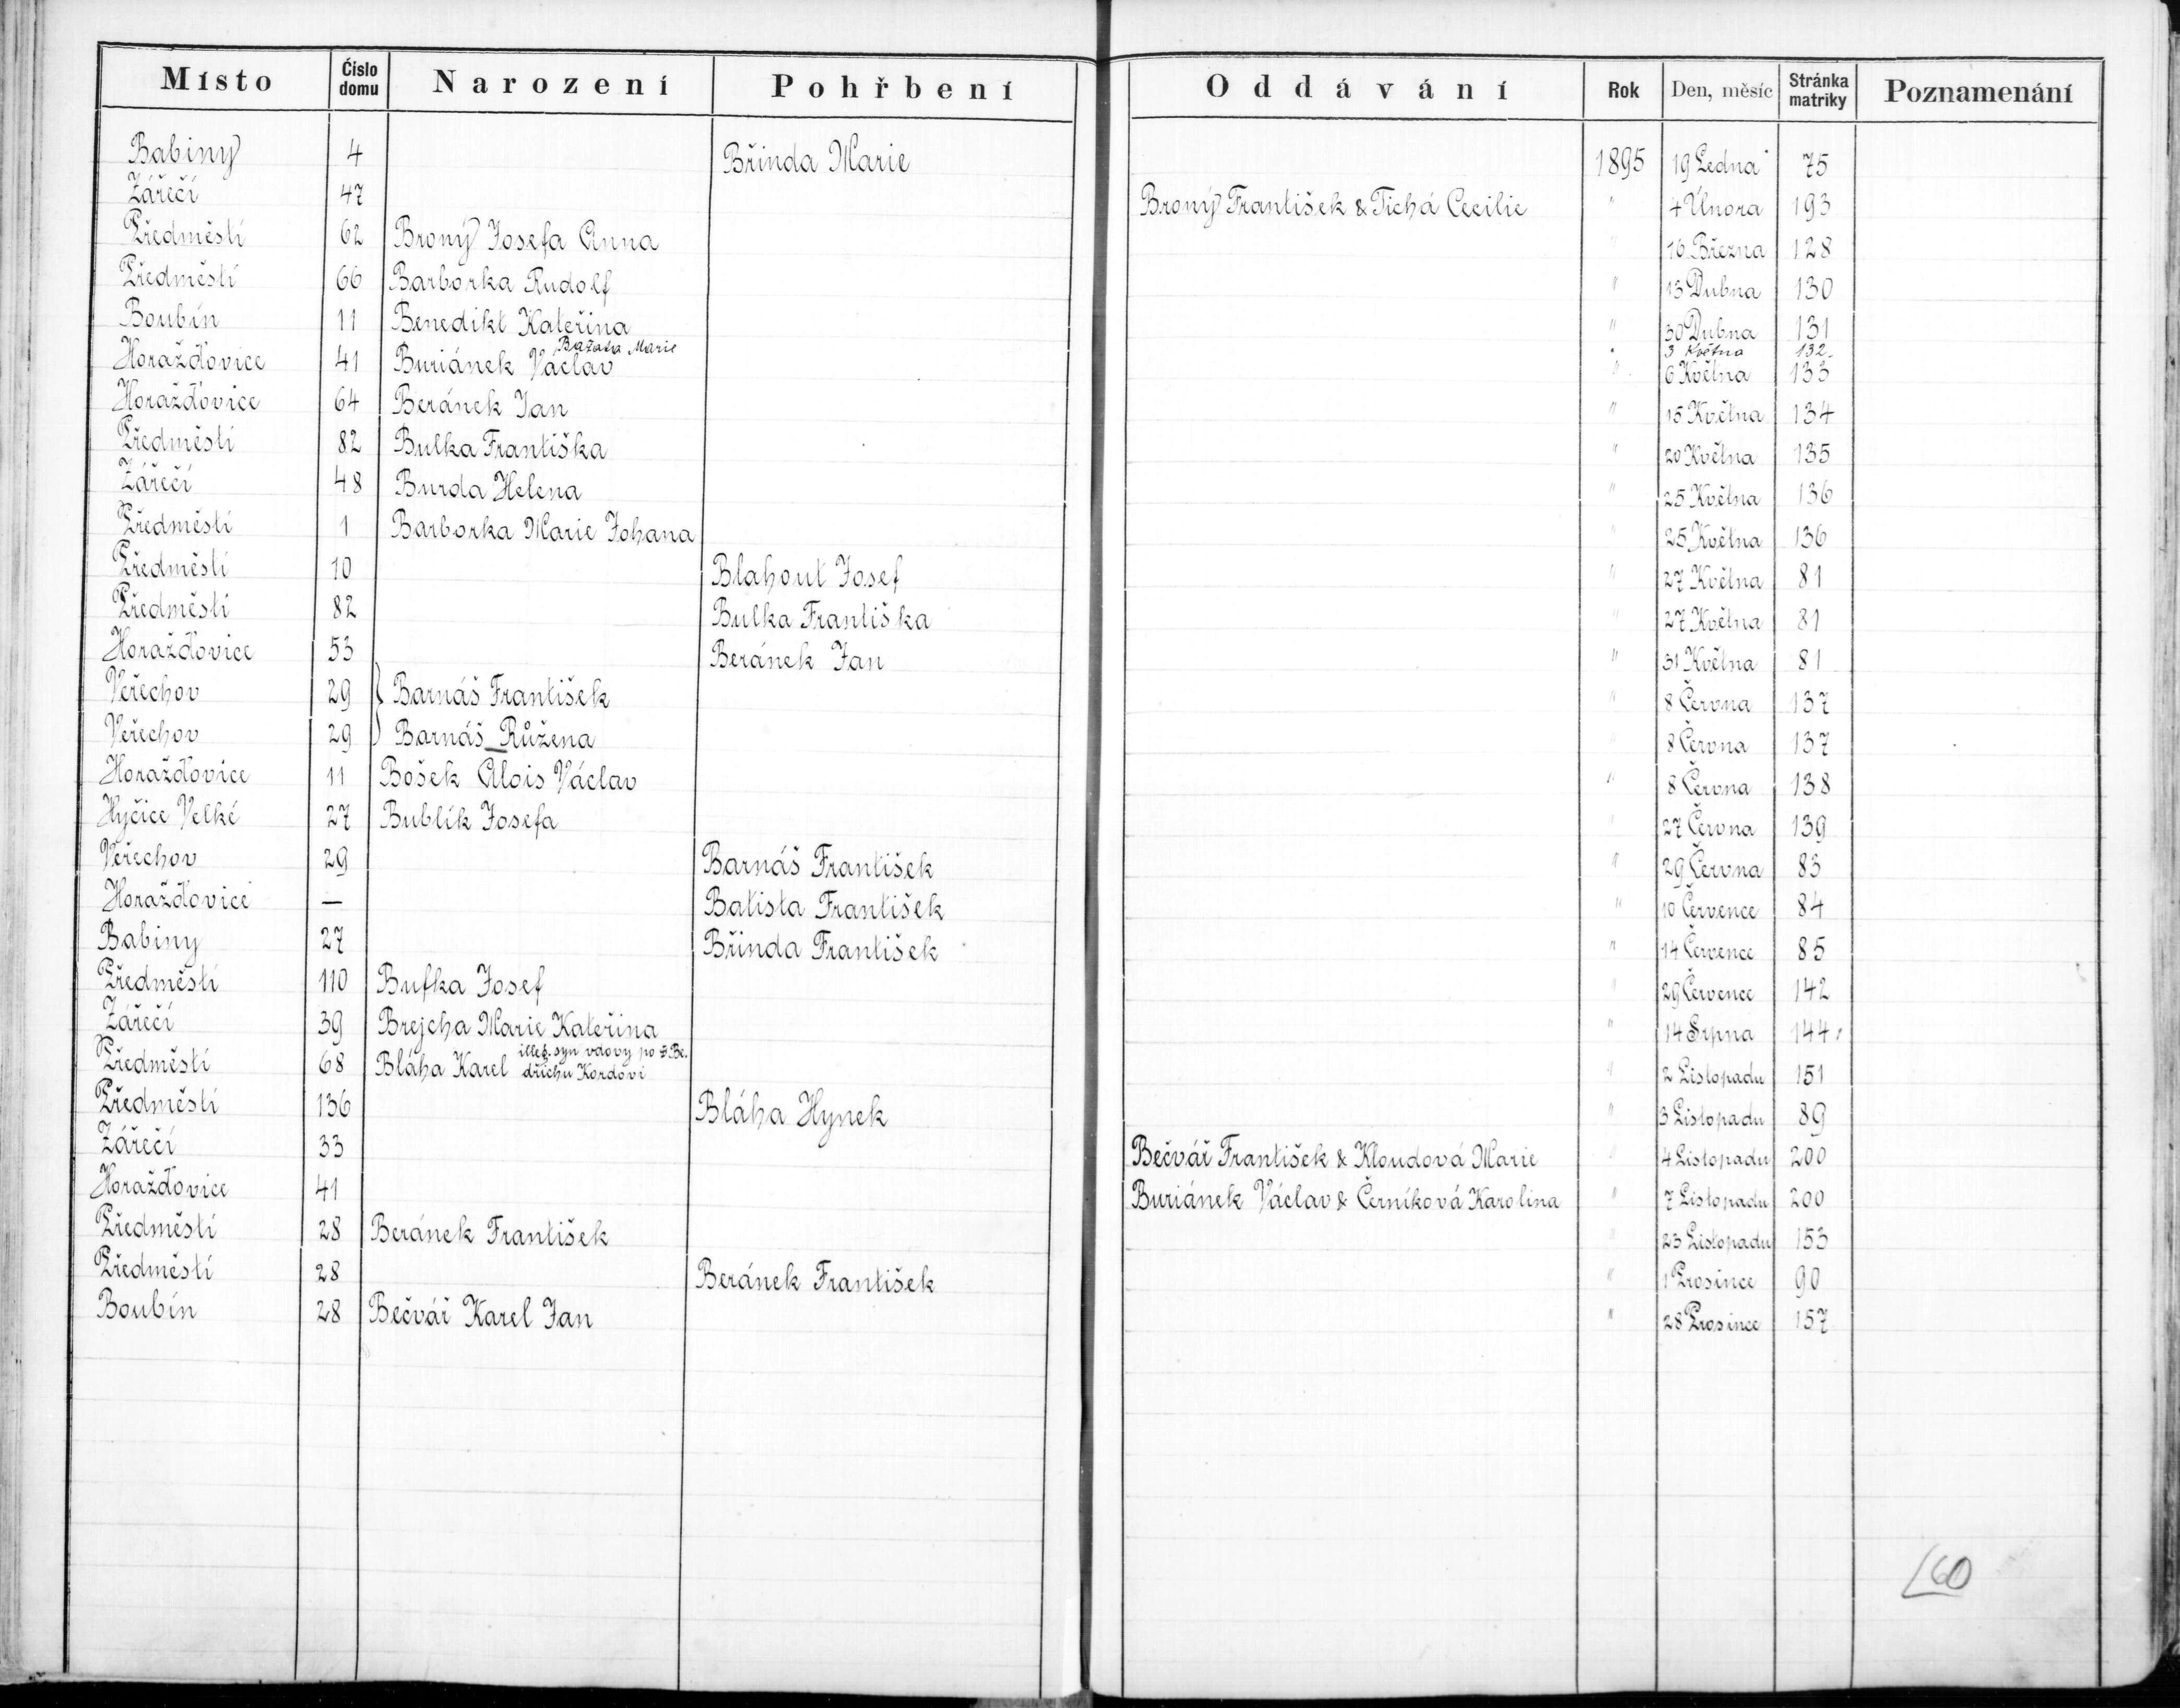 Místo Číslo domu Narození Pohřbení Oddávání Rok Den, měsíc Stránka matriky Poznamenání
Babiny 4 Břinda Marie 1895 19 Ledna 75
Zářečí 47 Brony František & Tichá Cecilie " 4 Února 193
Předměstí 62 Brony Josefa Anna " 16 Března 128
Předměstí 66 Barborka Rudolf " 13 Dubna 130
Boubín 11 Benedikt Kateřina " 30 Dubna 131
Bažata Marie " 3 Května 132
Horažďovice 41 Buriánek Václav " 6 Května 133
Horažďovice 64 Beránek Jan " 15 Května 134
Předměstí 82 Bulka Františka " 20 Května 135
Zářečí 48 Burda Helena " 25 Května 136
Předměstí 1 Barborka Marie Johana " 25 Května 136
Předměstí 10 Blahout Josef " 27 Května 81
Předměstí 82 Bulka Františka " 27 Května 81
Horažďovice 53 Beránek Jan " 31 Května 81
Veřechov 29 Barnáš František " 8 Června 137
Veřechov 29 Barnáš Růžena " 8 Června 137
Horažďovice 11 Bošek Alois Václav " 8 Června 138
Hyčice Velké 27 Bublík Josefa " 27 Června 139
Veřechov 29 Barnáš František " 29 Června 83
Horažďovice — Batista František " 10 Července 84
Babiny 27 Břinda František " 14 Července 85
Předměstí 110 Bufka Josef " 29 Července 142
Zářečí 39 Brejcha Marie Kateřina " 14 Srpna 144
Předměstí 68 Bláha Karel illeg. syn vdovy po Be.
dřichu Kordovi " 2 Listopadu 151
Předměstí 136 Bláha Hynek " 3 Listopadu 89
Zářečí 33 Bečvář František & Kloudová Marie " 4 Listopadu 200
Horažďovice 41 Buriánek Václav & Černíková Karolina " 7 Listopadu 200
Předměstí 28 Beránek František " 23 Listopadu 153
Předměstí 28 Beránek František " 1 Prosince 90
Boubín 28 Bečvář Karel Jan " 28 Prosince 157
60